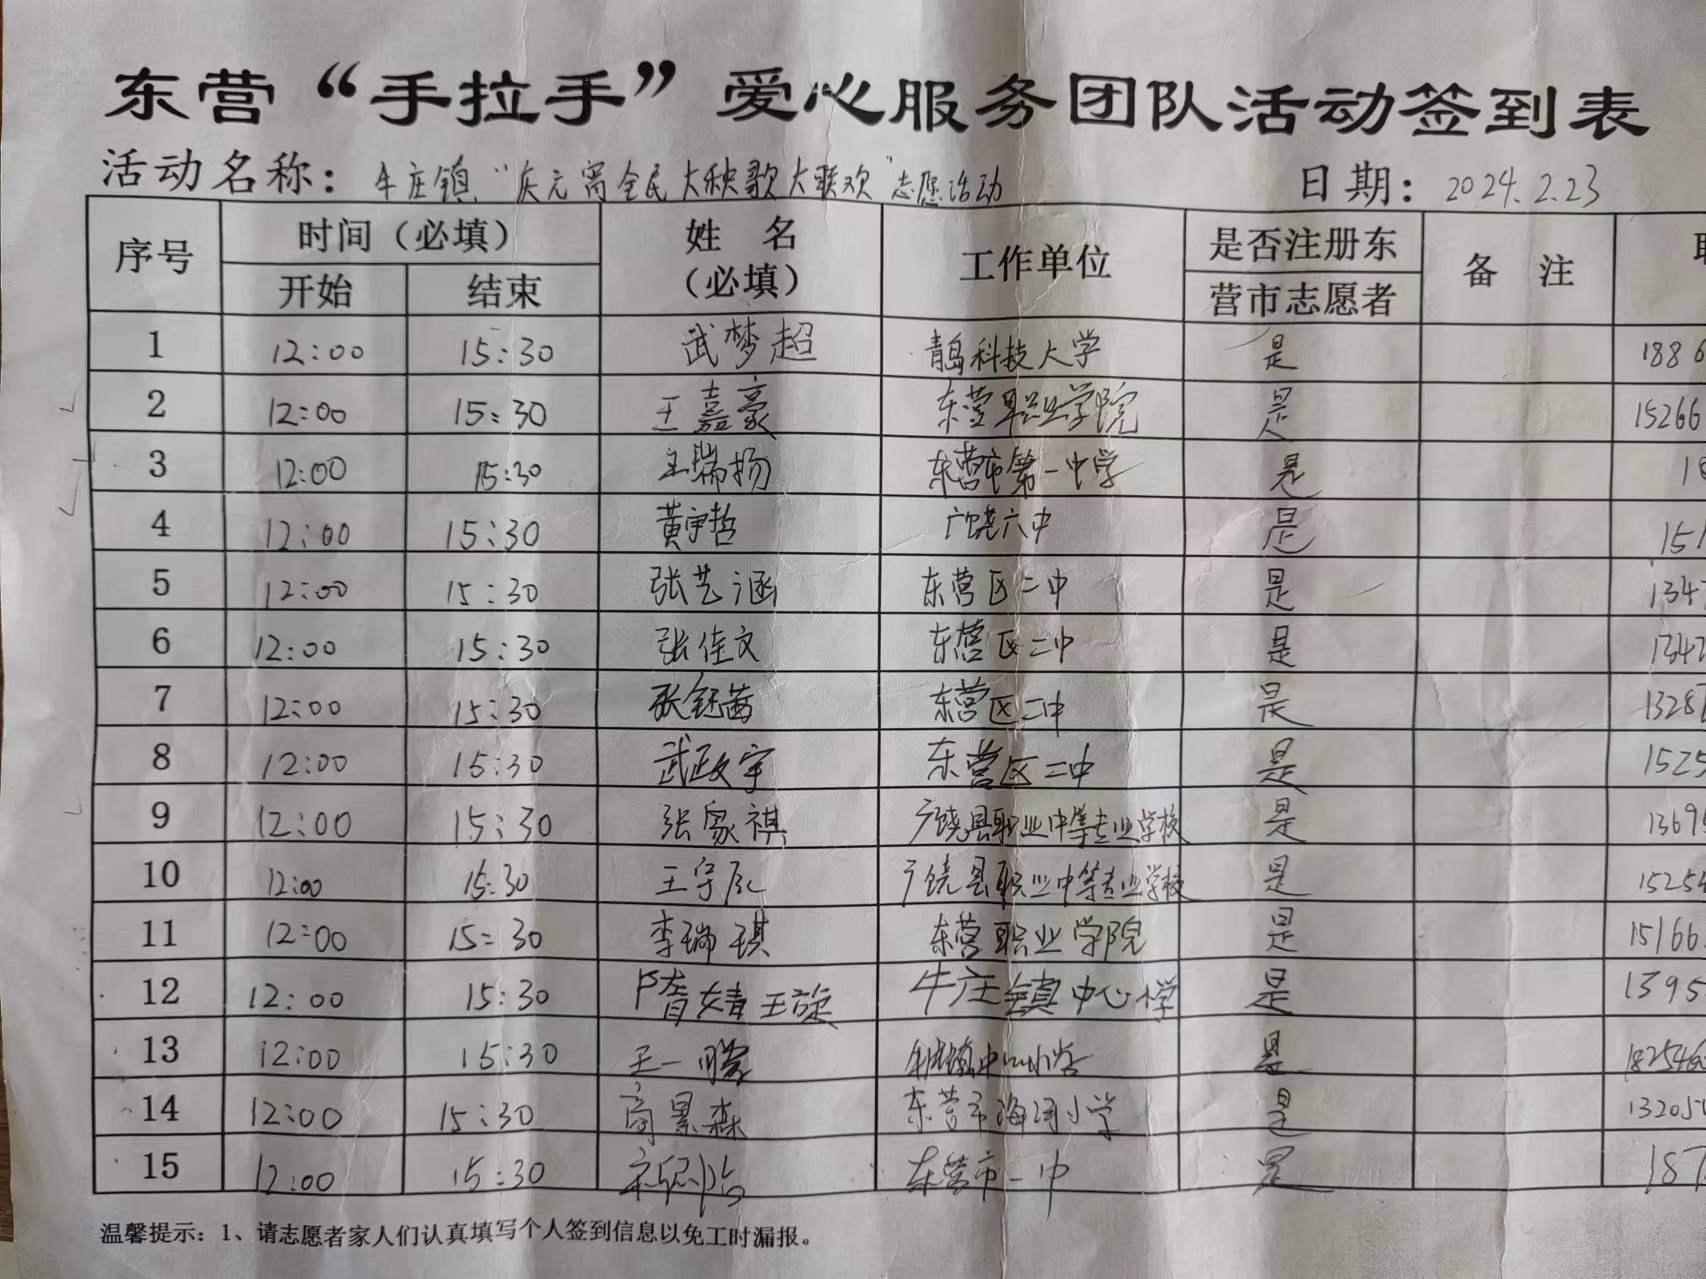 东营“手拉手”爱心服务团队活动签到表
活动名称：牛庄镇“庆元宵全民大秧歌大联欢”志愿活动 日期：2024.2.23
序号 时间（必填） 姓 名 工作单位 是否注册东 备 注
开始 结束 （必填） 营市志愿者
1 12:00 15:30 武梦超 青岛科技大学 是 188
2 12:00 15:30 王嘉豪 东营职业学院 是 15266
3 12:00 15:30 王瑞扬 东营市第一中学 是 18
4 12:00 15:30 黄宇哲 广饶六中 是 151
5 12:00 15:30 张艺涵 东营区二中 是 1347
6 12:00 15:30 张佳文 东营区二中 是 1347
7 12:00 15:30 张钰茜 东营区二中 是 1328
8 12:00 15:30 武政宇 东营区二中 是 1525
9 12:00 15:30 张家祺 广饶县职业中等专业学校 是 1369
10 12:00 15:30 王宇 广饶县职业中等专业学校 是 15254
11 12:00 15:30 李瑞琪 东营职业学院 是 15166
12 12:00 15:30 隋婧璇 牛庄镇中心小学 是 1395
13 12:00 15:30 王一 牛庄镇中心小学 是 18254
14 12:00 15:30 商景森 东营市海河小学 是 13205
15 12:00 15:30 东营市一中 是 187
温馨提示：1、请志愿者家人们认真填写个人签到信息以免工时漏报。